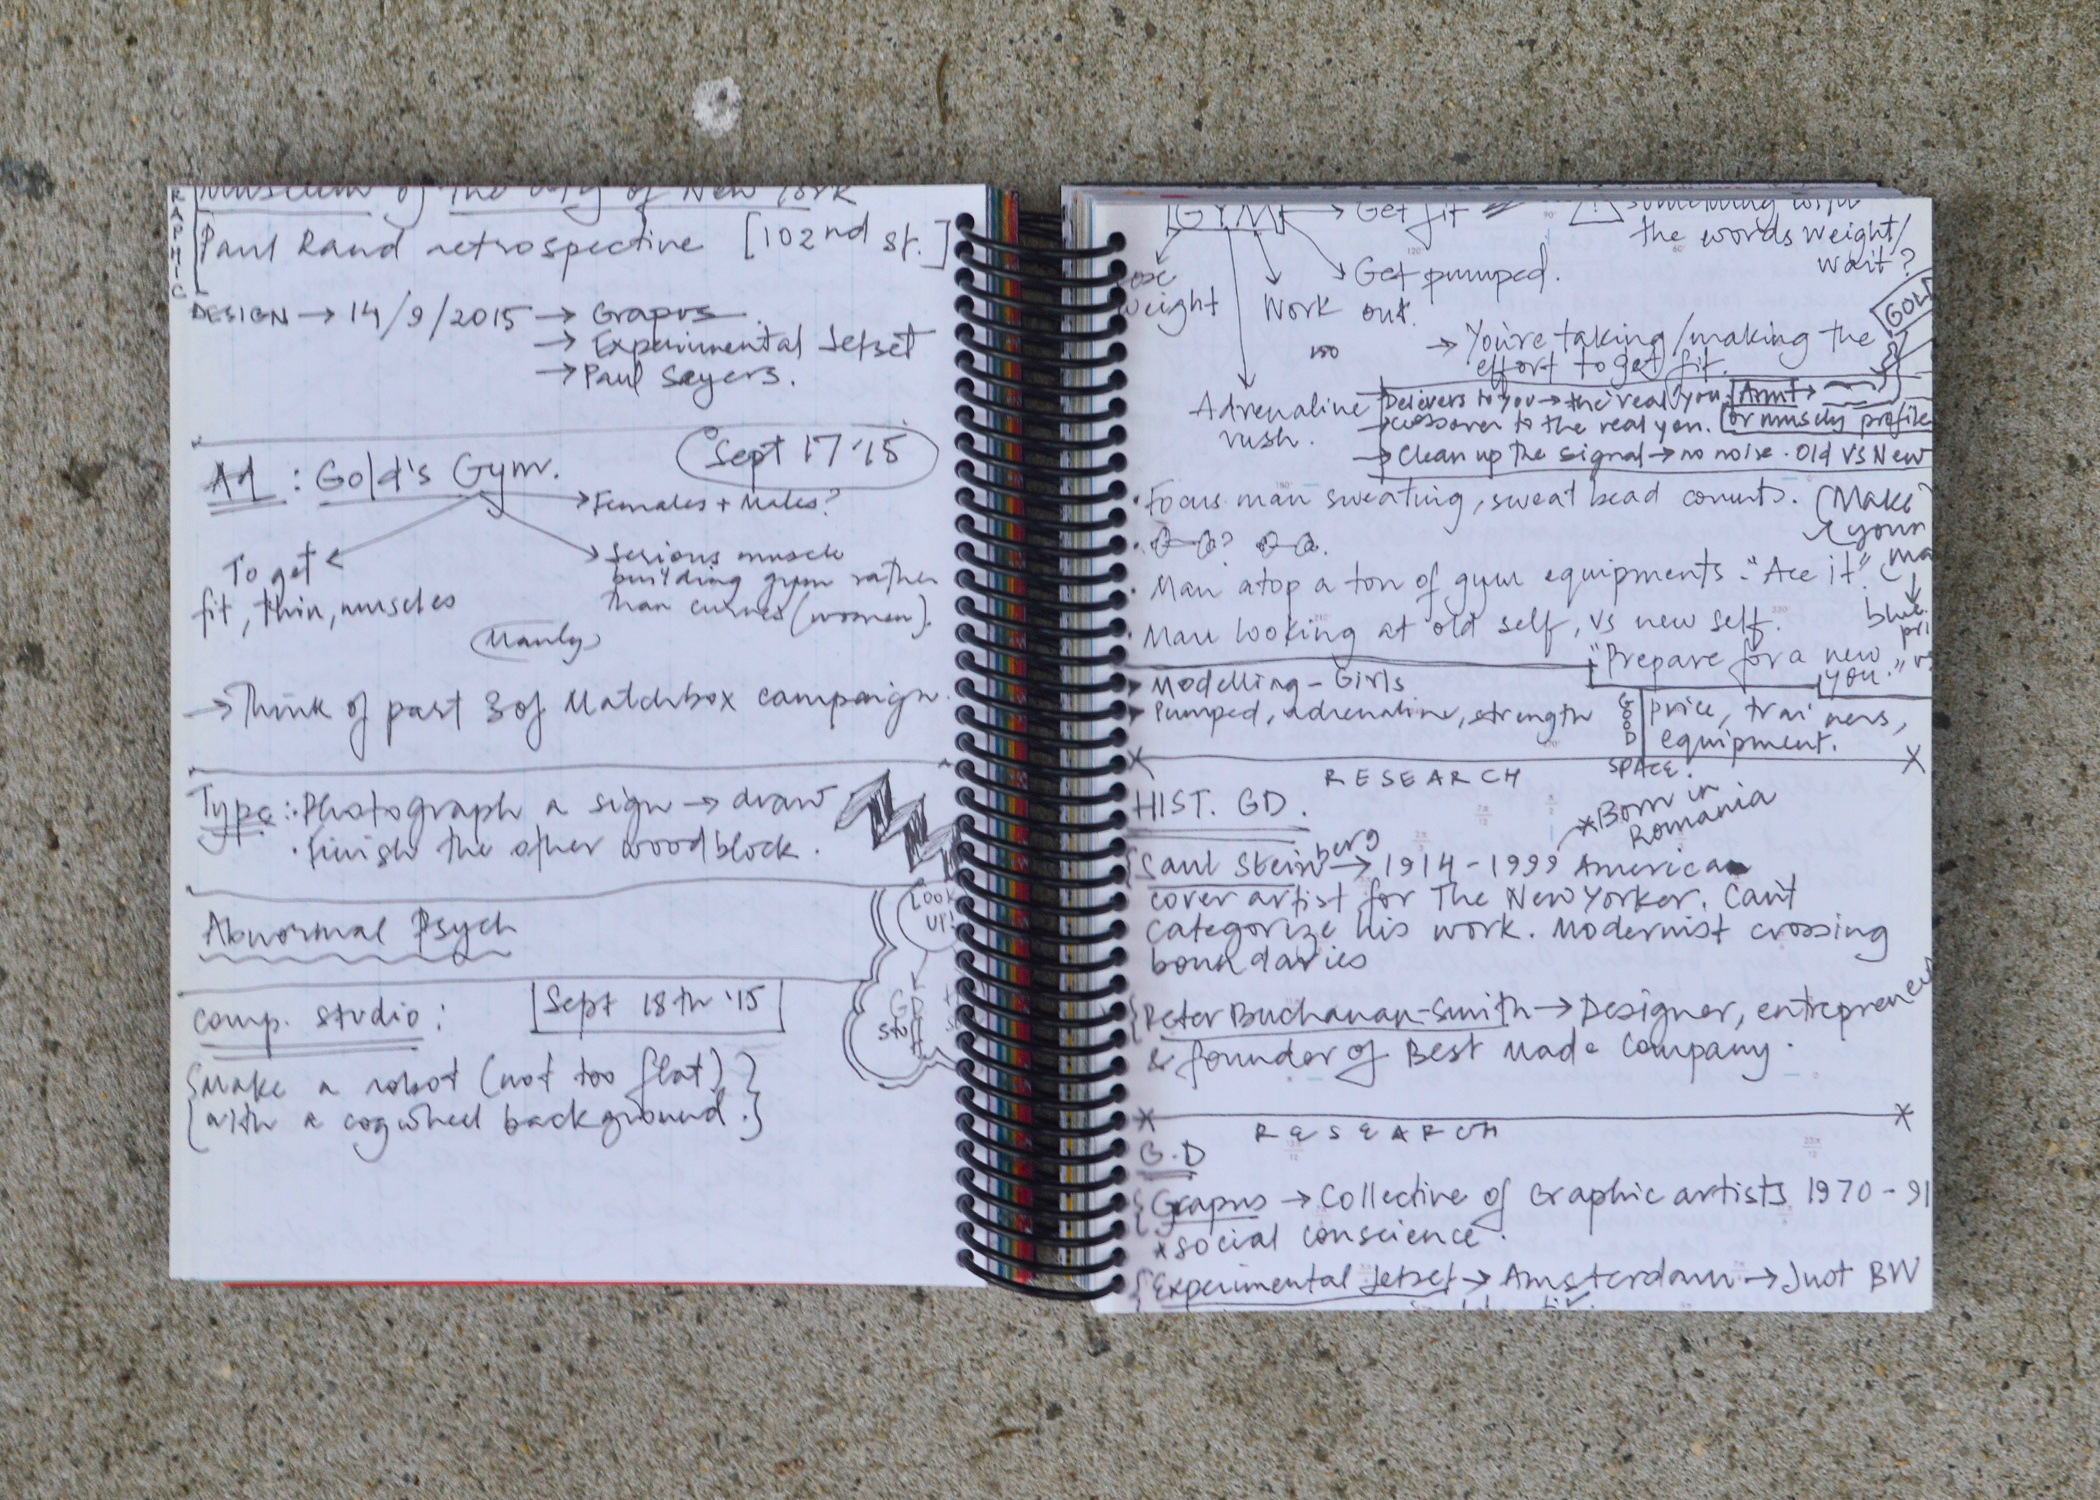 Museum of the city of New York
GRAPHIC
Paul Rand retrospective [102nd st.]
DESIGN → 14/9/2015 → Grapus
→ Experimental Jetset
→ Paul Sayers.
Sept 17 '15
Ad : Gold's Gym.
→ Females + Males?
To get
fit, thin, muscles
→ Serious muscle
building gym rather
than curves (women).
Manly
→ Think of past 3 of Matchbox campaign.
Type: · Photograph a sign → draw
· Finish the other woodblock.
Abnormal Psych
Look
up!
GD
stuff
Comp. Studio: Sept 18th '15
{Make a robot (not too flat)}
{with a cogwheel background.}
GYM → Get fit
something with
the words weight/
wait?
lose
weight
Work out.
Get pumped.
GOLD
→ You're taking/making the
effort to get fit.
Adrenaline
rush.
Delivers to you → the real you.
→ crossover to the real you. or musely profile
→ Clean up the signal → no noise. Old vs New
· Focus man sweating, sweat bead counts.
(Make
your
ma
· Man atop a ton of gym equipments. "Ace it"
· Man looking at old self, vs new self.
blue
pri
"Prepare for a new
you."
Modelling - Girls
Pumped, adrenaline, strength
GOOD
price, trainers,
equipment.
SPACE.
RESEARCH
HIST. GD.
*Born in
Romania
{Saul Steinberg → 1914 - 1999 American
cover artist for The New Yorker. Can't
categorize his work. Modernist crossing
boundaries
{Peter Buchanan-Smith → Designer, entrepreneur
& founder of Best Made Company.
RESEARCH
G.D
{Grapus → Collective of Graphic artists 1970 - 91
*social conscience.
{Experimental Jetset → Amsterdam → Just BW